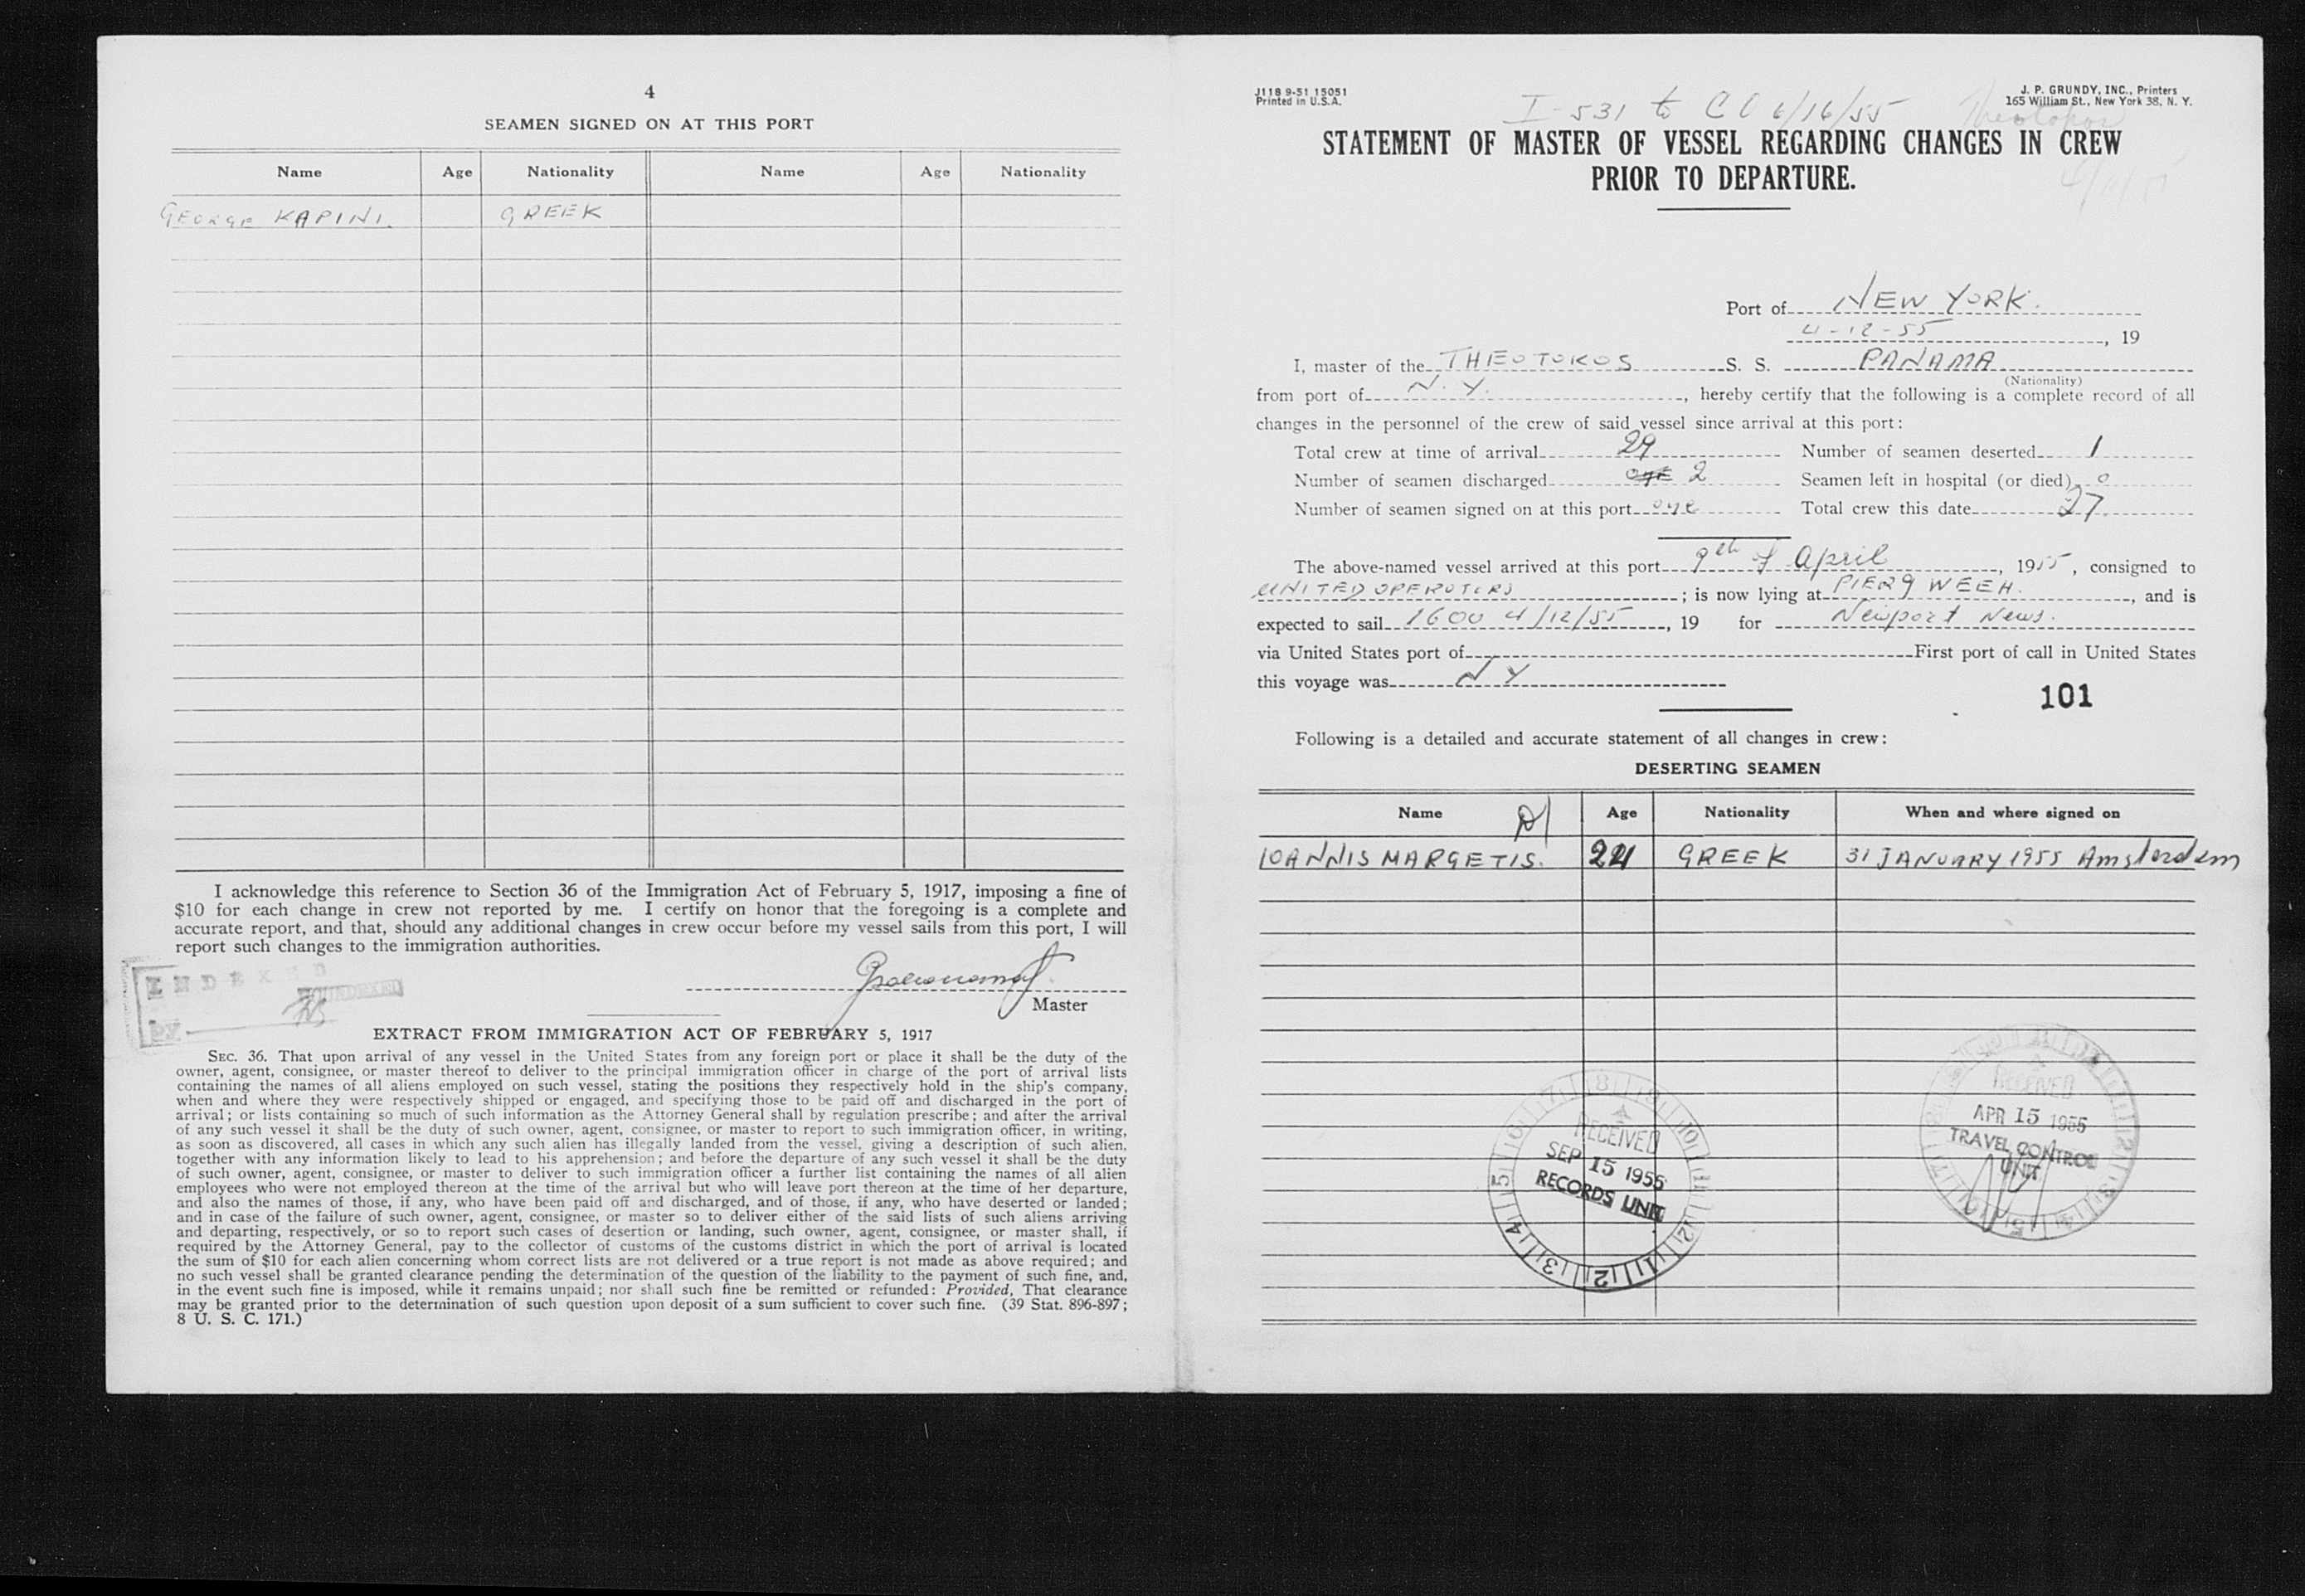 4
SEAMEN SIGNED ON AT THIS PORT
Name Age Nationality Name Age Nationality
GEORGE KAPINI. GREEK
I acknowledge this reference to Section 36 of the Immigration Act of February 5, 1917, imposing a fine of
$10 for each change in crew not reported by me. I certify on honor that the foregoing is a complete and
accurate report, and that, should any additional changes in crew occur before my vessel sails from this port, I will
report such changes to the immigration authorities.
INDEXED
BY
Master
EXTRACT FROM IMMIGRATION ACT OF FEBRUARY 5, 1917
SEC. 36. That upon arrival of any vessel in the United States from any foreign port or place it shall be the duty of the
owner, agent, consignee, or master thereof to deliver to the principal immigration officer in charge of the port of arrival lists
containing the names of all aliens employed on such vessel, stating the positions they respectively hold in the ship's company,
when and where they were respectively shipped or engaged, and specifying those to be paid off and discharged in the port of
arrival; or lists containing so much of such information as the Attorney General shall by regulation prescribe; and after the arrival
of any such vessel it shall be the duty of such owner, agent, consignee, or master to report to such immigration officer, in writing,
as soon as discovered, all cases in which any such alien has illegally landed from the vessel, giving a description of such alien,
together with any information likely to lead to his apprehension; and before the departure of any such vessel it shall be the duty
of such owner, agent, consignee, or master to deliver to such immigration officer a further list containing the names of all alien
employees who were not employed thereon at the time of the arrival but who will leave port thereon at the time of her departure,
and also the names of those, if any, who have been paid off and discharged, and of those, if any, who have deserted or landed;
and in case of the failure of such owner, agent, consignee, or master so to deliver either of the said lists of such aliens arriving
and departing, respectively, or so to report such cases of desertion or landing, such owner, agent, consignee, or master shall, if
required by the Attorney General, pay to the collector of customs of the customs district in which the port of arrival is located
the sum of $10 for each alien concerning whom correct lists are not delivered or a true report is not made as above required; and
no such vessel shall be granted clearance pending the determination of the question of the liability to the payment of such fine, and,
in the event such fine is imposed, while it remains unpaid; nor shall such fine be remitted or refunded: Provided, That clearance
may be granted prior to the determination of such question upon deposit of a sum sufficient to cover such fine. (39 Stat. 896-897;
8 U. S. C. 171.)
J118 9-51 15051
Printed in U.S.A.
I-531 to CO 6/16/55
J. P. GRUNDY, INC., Printers
165 William St., New York 38, N. Y.
Theotokos
STATEMENT OF MASTER OF VESSEL REGARDING CHANGES IN CREW
PRIOR TO DEPARTURE.
Port of NEW YORK.
4-12-55, 19
I, master of the THEOTOKOS S. S. PANAMA
(Nationality)
from port of N. Y., hereby certify that the following is a complete record of all
changes in the personnel of the crew of said vessel since arrival at this port:
Total crew at time of arrival 29 Number of seamen deserted 1
Number of seamen discharged one 2 Seamen left in hospital (or died) 0
Number of seamen signed on at this port one Total crew this date 27
The above-named vessel arrived at this port 9th of April, 1955, consigned to
UNITED OPEROTORS; is now lying at PIER 9 WEEH., and is
expected to sail 1600 4/12/55, 19 for Newport News.
via United States port of First port of call in United States
this voyage was N Y
101
Following is a detailed and accurate statement of all changes in crew:
DESERTING SEAMEN
Name Age Nationality When and where signed on
IOANNIS MARGETIS. 24 GREEK 31 JANUARY 1955 Amsterdam
RECEIVED
SEP 15 1955
RECORDS UNIT
RECEIVED
APR 15 1955
TRAVEL CONTROL
UNIT